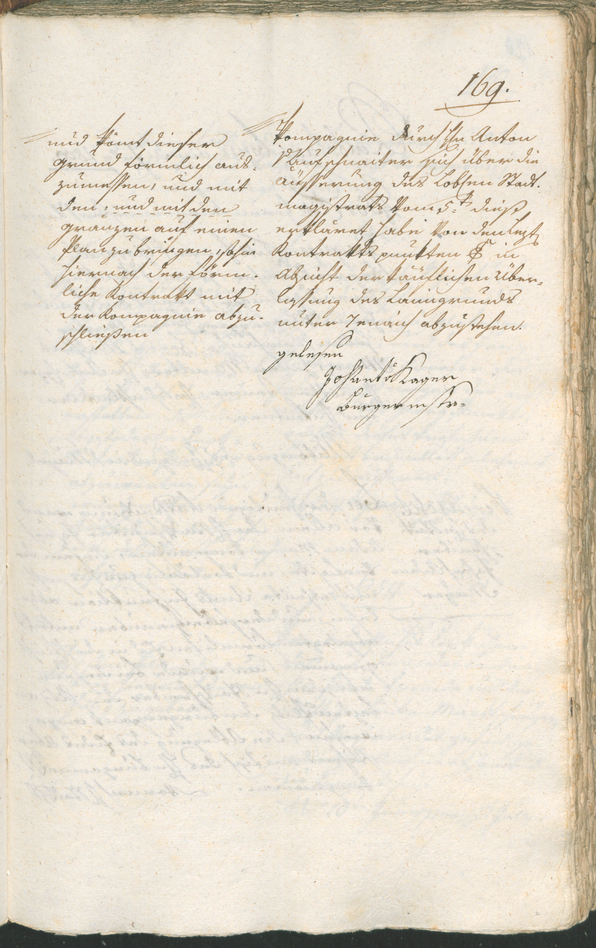 169.
und kömt dieser
Grund förmlich aus-
zumessen, und mit
den, und mit den
Gränzen auf einen
Plan zu bringen, sohin
hiernach der förm-
liche Kontrakt mit
der Kompagnie abzu-
schließen
Kompagnie durch Hn Anton
sich über die
Äusserung des Löbl Stadt-
magistrats vom 5t dieß
erkläret habe von den letzt
Kontrakts punkten in
Absicht der käuflichen Über-
laßung des Lanngrunds
unter abzustehen.
gelesen
Johann Kager
Bürgermstr.